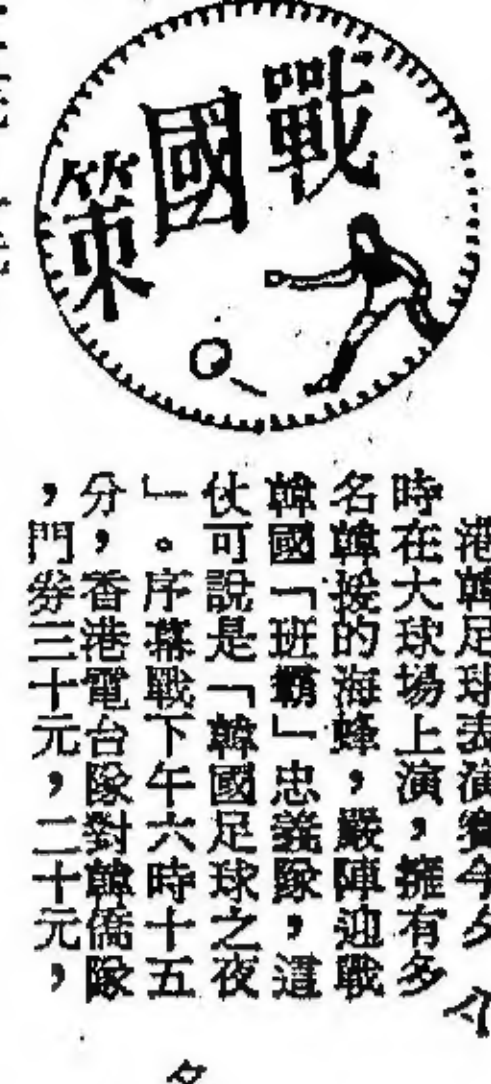 戰國策
港韓足球表演賽今夕
時在大球場上演，擁有多
名韓援的海蜂，嚴陣迎戰
韓國「班霸」忠義隊，這
仗可說是「韓國足球之夜
」。序幕戰下午六時十五
分，香港電台隊對韓僑隊
，門券三十元，二十元，